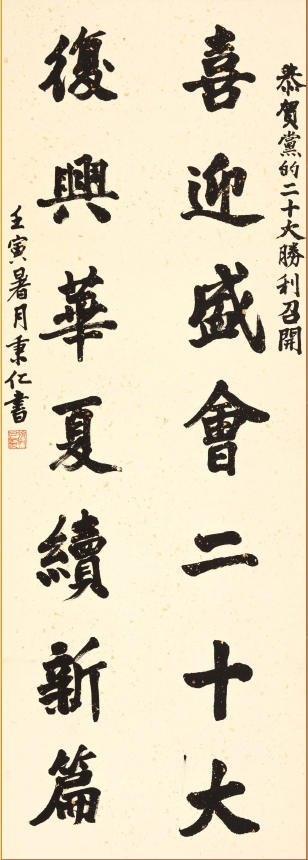 恭賀黨的二十大勝利召開
喜迎盛會二十大
復興華夏續新篇
壬寅暑月秉仁書